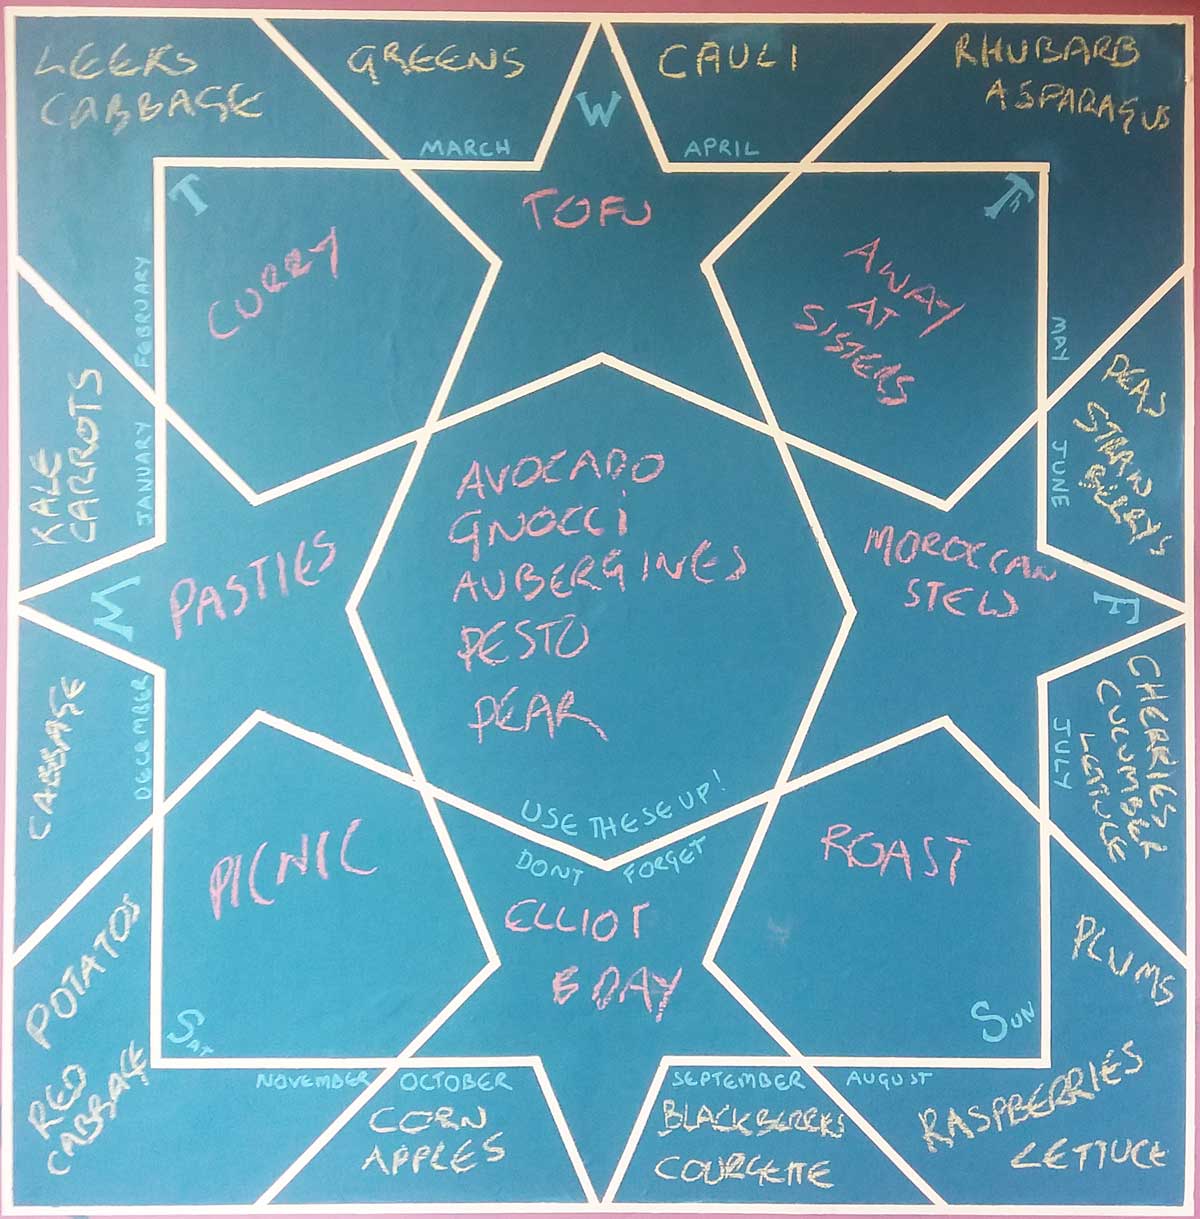 LEEKS
CABBAGE
GREENS
CAULI
RHUBARB
ASPARAGUS
MARCH
W
APRIL
T
TOFU
Th
FEBRUARY
CURRY
AWAY
AT
SISTERS
MAY
KALE
CARROTS
JANUARY
PEAS
STRAW
BERRYS
JUNE
AVOCADO
GNOCCI
AUBERGINES
PESTO
PEAR
M
PASTIES
MOROCCAN
STEW
F
CABBAGE
DECEMBER
CHERRIES
CUCUMBER
LETTUCE
JULY
USE THESE UP!
DONT FORGET
PICNIC
ELLIOT
B DAY
ROAST
POTATOS
RED
CABBAGE
PLUMS
SAT
SUN
NOVEMBER
OCTOBER
SEPTEMBER
AUGUST
CORN
APPLES
BLACKBERRIES
COURGETTE
RASPBERRIES
LETTUCE